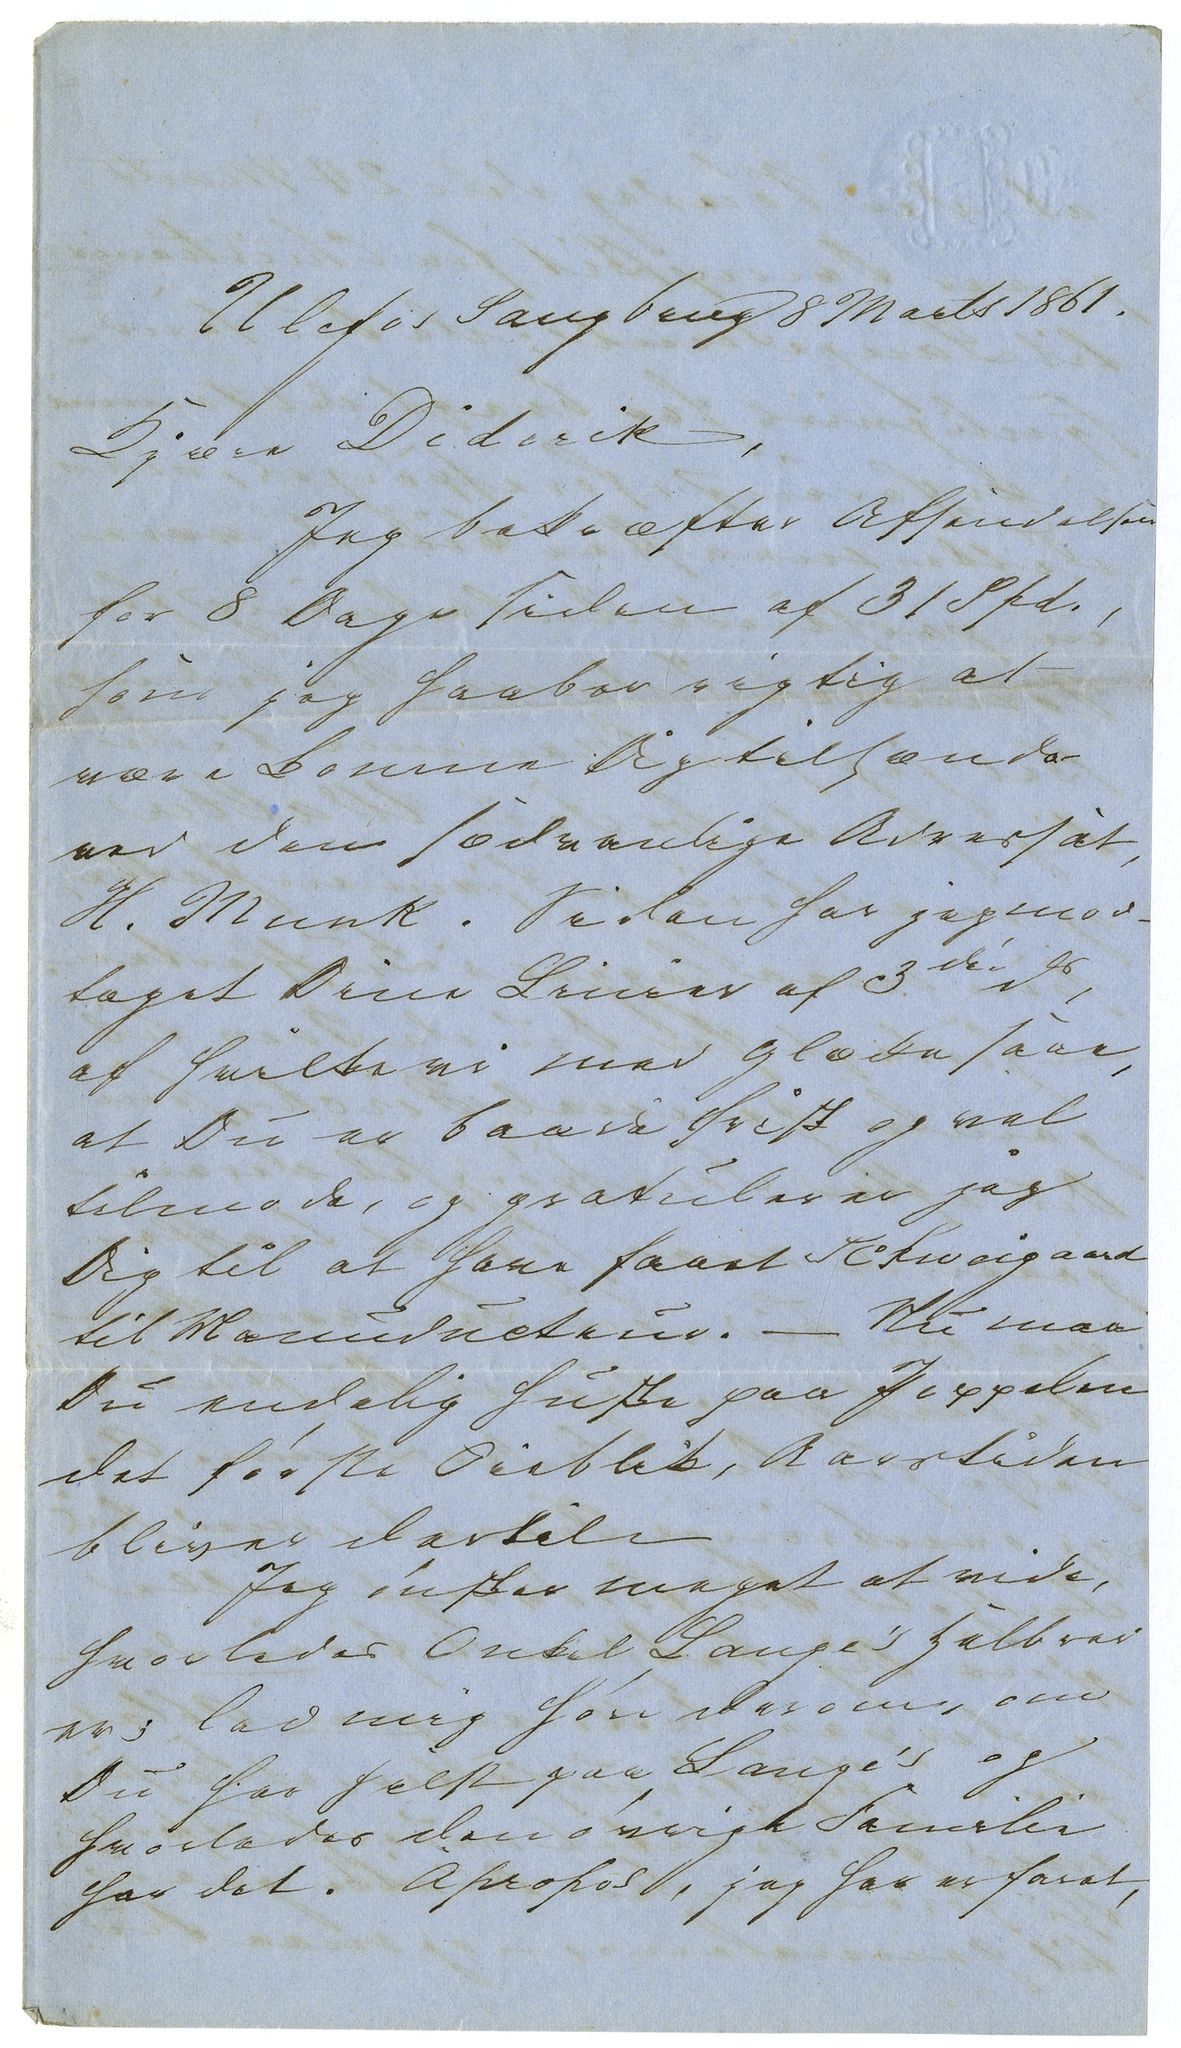 Ulefos Saugbrug 8 Marts 1861.
Kjære Diderik,
Jeg bekræfter Afsendelsen
for 8 Dage siden af 31 Spd.,
som jeg haaber rigtig at
være komne Dig tilhænde
ved den sædvanlige Adressat,
H. Munk. Siden har jeg mod-
taget Dine Linier af 3die ds,
af hvilke vi med Glæde saae,
at Du er baade frisk og vel
tilmode, og gratulerer jeg
Dig til at have faaet Schweigaard
til Manuducteur. — Nu maa
Du endelig huske paa
det første Øieblik, Aarstiden
bliver dertil.
Jeg ønsker meget at vide,
hvorledes Onkel Lange's
er; lad mig høre derom, om
Du har hilst paa Lange's og
hvorledes den øvrige Familie
har det. Apropos, jeg har erfaret,